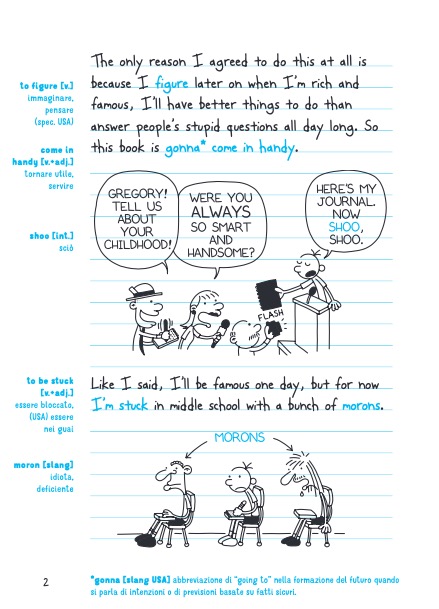 The only reason I agreed to do this at all is
because I figure later on when I'm rich and
famous, I'll have better things to do than
answer people's stupid questions all day long. So
this book is gonna* come in handy.
to figure [v.]
immaginare,
pensare
(spec. USA)
come in
handy [v.+adj.]
tornare utile,
servire
shoo [int.]
sciò
GREGORY!
TELL US
ABOUT
YOUR
CHILDHOOD!
WERE YOU
ALWAYS
SO SMART
AND
HANDSOME?
HERE'S MY
JOURNAL.
NOW
SHOO,
SHOO.
FLASH
Like I said, I'll be famous one day, but for now
I'm stuck in middle school with a bunch of morons.
to be stuck
[v.+adj.]
essere bloccato,
(USA) essere
nei guai
moron [slang]
idiota,
deficiente
MORONS
2
*gonna [slang USA] abbreviazione di "going to" nella formazione del futuro quando
si parla di intenzioni o di previsioni basate su fatti sicuri.